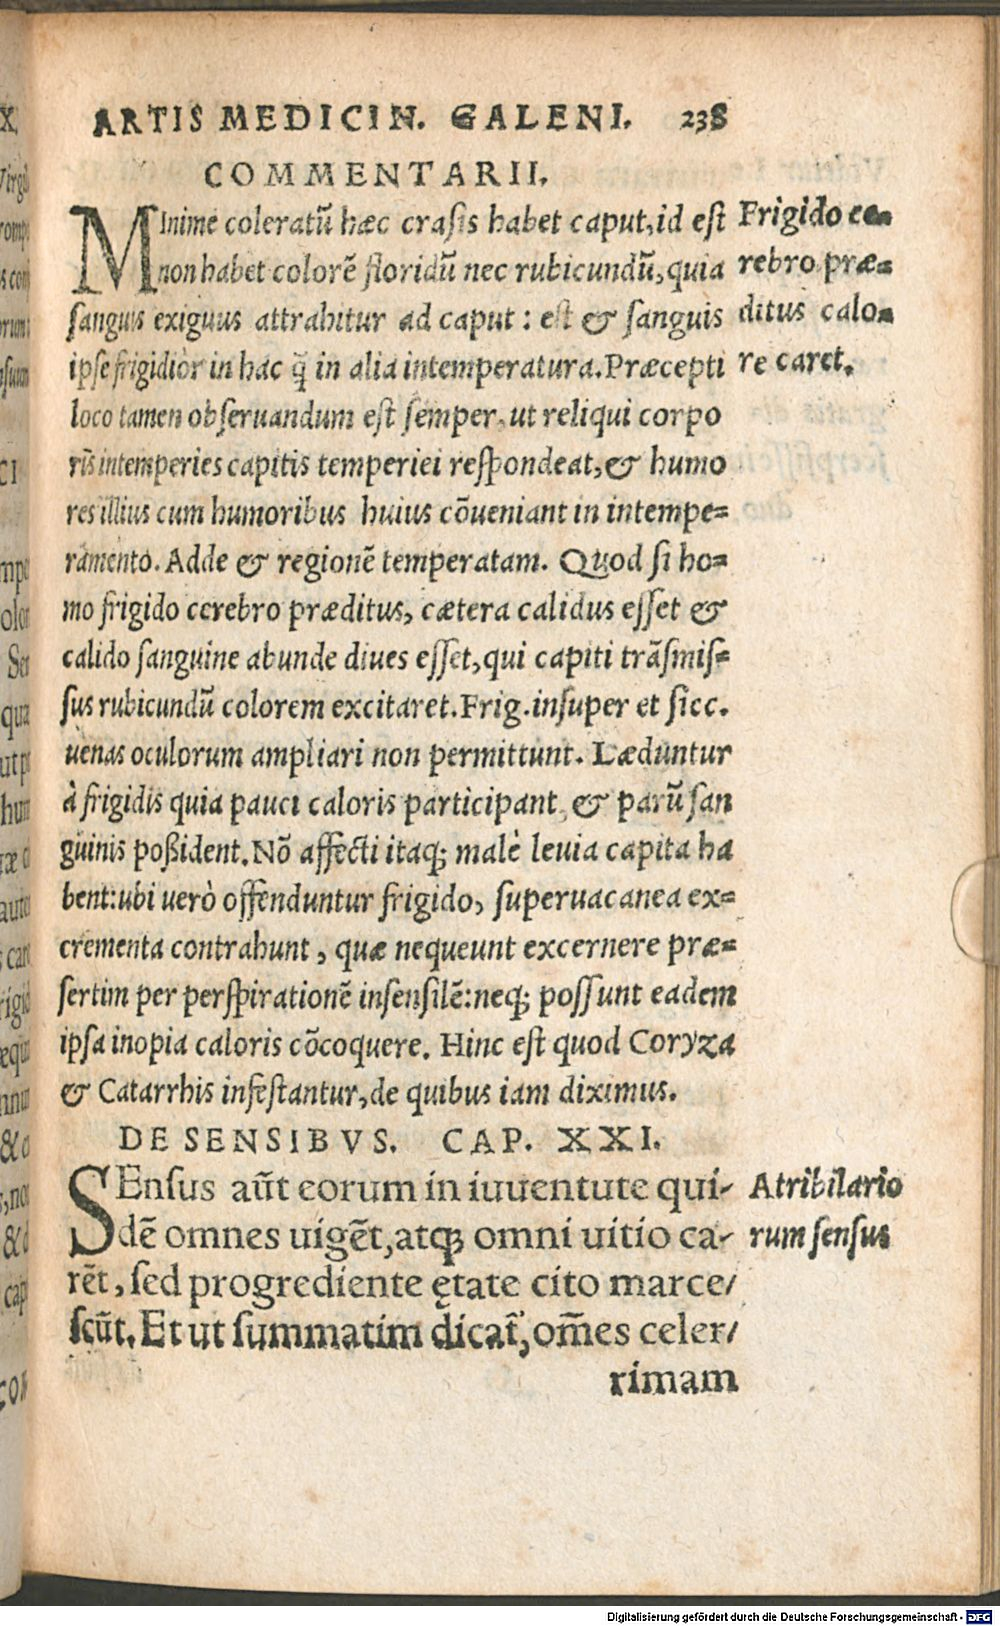 ARTIS MEDICIN. GALENI. 238
COMMENTARII.
MInime coleratū hæc crasis habet caput, id est
non habet colorē floridū nec rubicundū, quia
sanguis exiguus attrahitur ad caput : est & sanguis
ipse frigidior in hac q̃ in alia intemperatura. Præcepti
loco tamen obseruandum est semper, ut reliqui corpo
ris intemperies capitis temperiei respondeat, & humo
res illius cum humoribus huius cōueniant in intempe=
ramento. Adde & regionē temperatam. Quod si ho=
mo frigido cerebro præditus, cætera calidus esset &
calido sanguine abunde diues esset, qui capiti trāsmis=
sus rubicundū colorem excitaret. Frig. insuper et sicc.
uenas oculorum ampliari non permittunt. Læduntur
à frigidis quia pauci caloris participant, & parū san
guinis poßident. Nō affecti itaq; malè leuia capita ha
bent: ubi uerò offenduntur frigido, superuacanea ex=
crementa contrahunt, quæ nequeunt excernere præ=
sertim per perspirationē insensilē: neq; possunt eadem
ipsa inopia caloris cōcoquere. Hinc est quod Coryza
& Catarrhis infestantur, de quibus iam diximus.
Frigido ce=
rebro præ=
ditus calo=
re caret.
DE SENSIBVS. CAP. XXI.
SEnsus aūt eorum in iuuentute qui-
dē omnes uigēt, atq; omni uitio ca-
rēt, sed progrediente ętate cito marce/
scūt. Et ut summatim dicat̃, om̄es celer/
rimam
Atribilario
rum sensus
Digitalisierung gefördert durch die Deutsche Forschungsgemeinschaft - DFG